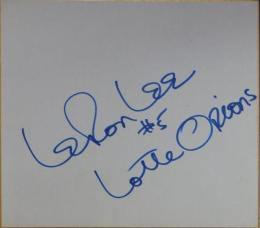 LeRon Lee
#5
Lotte Orions